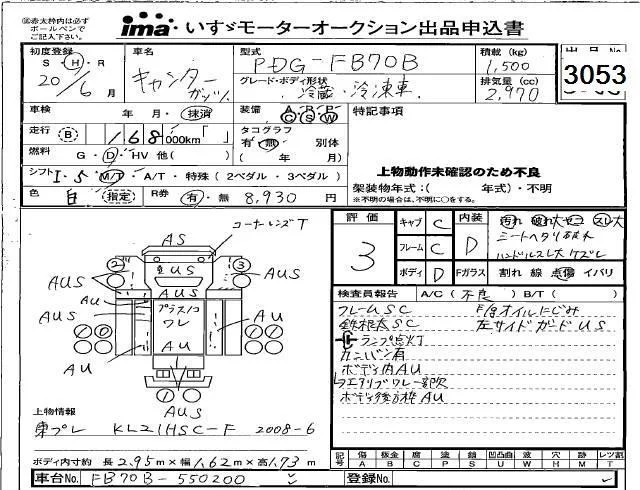 ※赤太枠内は必ず
ボールペンで
ご記入下さい。
ima いすゞモーターオークション出品申込書
初度登録 車名 型式 積載(kg) 出品No
S H・R キャンター PDG-FB70B 1,500 3053
20/6月 ガッツ グレード・ボディ形状 冷蔵・冷凍車 排気量(cc) 2,970
車検 年 月・抹消 装備 特記事項
走行 B 168,000km タコグラフ 有・無 別体
燃料 G・D・HV 他( ) ( 年 月)
シフト I・5 M/T・A/T・特殊(2ペダル・3ペダル)
上物動作未確認のため不良
架装物年式:( 年式)・不明
※不明の場合は、不明に○をする。
色 白 指定 R券 有・無 8,930円
評価 3
キャブ C 内装 D 汚れ 破れ大 スレ大
シートヘタリ破れ
フレーム C ハンドルスレ大 ケズレ
ボディ D Fガラス 割れ 線 点傷 イバリ
検査員報告 A/C(不良) B/T( )
フレームSC F/Gオイルにじみ
鉄板太SC 左サイドガードUS
ランプ点灯
カンバン有
ボディ内AU
エアリブワレ
ボディ後方枠AU
コーナーレンズT
AS
2 3
AUS US AUS
AUS AU AUS AU AUS
AUS プラスノコ
ワレ
AU AU AU
AUS
上物情報
東プレ KL21HSC-F 2008-6
記号 傷 板金 腐 塗 錆 凹凸曲 波 穴 跡 レツ割
A B C P S U W H M T
ボディ内寸約 長2.95m×幅1.62m×高1.73m
車台No. FB70B-550200 登録No.